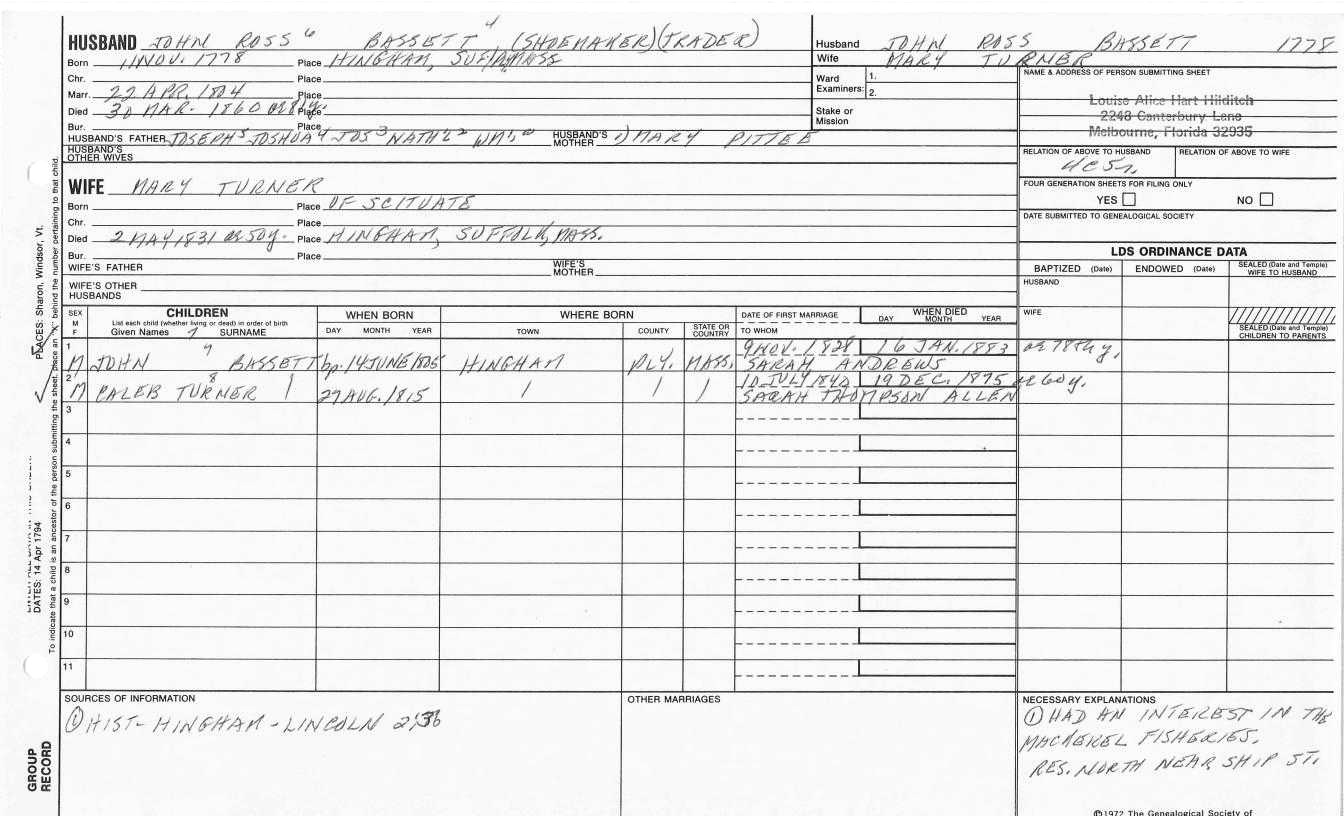 HUSBAND JOHN ROSS 6 BASSETT 4 (SHOEMAKER)(TRADER)
Born 11 NOV. 1778 Place HINGHAM, MASS
Chr. Place
Marr. 22 APR. 1804 Place
Died 30 MAR. 1860 ae 81y. Place
Bur. Place
HUSBAND'S FATHER JOSEPH 5 JOSHUA 4 JOS 3 NATH'L 2 WM 1, 0 HUSBAND'S MOTHER 1) MARY PITTEE
HUSBAND'S OTHER WIVES
Husband JOHN ROSS BASSETT 1778
Wife MARY TURNER
Ward Examiners: 1.
2.
Stake or Mission
NAME & ADDRESS OF PERSON SUBMITTING SHEET
Louise Alice Hart Hilditch
2248 Canterbury Lane
Melbourne, Florida 32935
RELATION OF ABOVE TO HUSBAND RELATION OF ABOVE TO WIFE
FOUR GENERATION SHEETS FOR FILING ONLY
YES NO
DATE SUBMITTED TO GENEALOGICAL SOCIETY
WIFE MARY TURNER
Born Place OF SCITUATE
Chr. Place
Died 2 MAY 1831 ae 50y. Place HINGHAM, SUFFOLK, MASS.
Bur. Place
WIFE'S FATHER WIFE'S MOTHER
WIFE'S OTHER HUSBANDS
LDS ORDINANCE DATA
BAPTIZED (Date) ENDOWED (Date) SEALED (Date and Temple) WIFE TO HUSBAND
HUSBAND
WIFE
SEALED (Date and Temple) CHILDREN TO PARENTS
SEX M F
CHILDREN
List each child (whether living or dead) in order of birth
Given Names 7 SURNAME
WHEN BORN
DAY MONTH YEAR
WHERE BORN
TOWN COUNTY STATE OR COUNTRY
DATE OF FIRST MARRIAGE
TO WHOM
WHEN DIED
DAY MONTH YEAR
1 9 NOV. 1828 16 JAN. 1883 ae 78th y.
M JOHN BASSETT bp. 14 JUNE 1805 HINGHAM PLY. MASS. SARAH ANDREWS
2 10 JULY 1842 19 DEC. 1875 ae 60y.
M CALEB TURNER 27 AUG. 1815 SARAH THOMPSON ALLEN
3
4
5
6
7
8
9
10
11
SOURCES OF INFORMATION
① HIST- HINGHAM - LINCOLN 2;36
OTHER MARRIAGES
NECESSARY EXPLANATIONS
① HAD AN INTEREST IN THE
MACKEREL FISHERIES.
RES. NORTH NEAR SHIP ST.
©1972 The Genealogical Society of
PLACES: Sharon, Windsor, Vt.
DATES: 14 Apr 1794
To indicate that a child is an ancestor of the person submitting the sheet, place an "X" behind the number pertaining to that child.
GROUP
RECORD